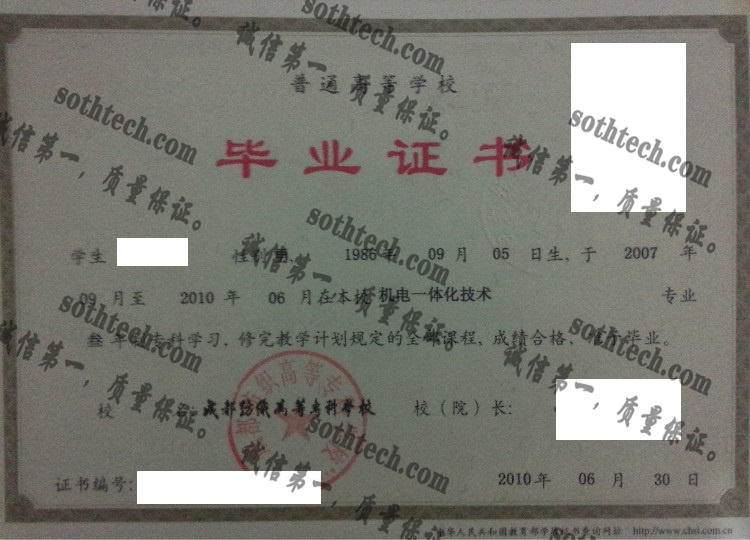 sothtech.com
诚信第一，质量保证。
普通高等学校
毕业证书
sothtech.com
诚信第一，质量保证。
sothtech.com
诚信第一，质量保证。
sothtech.com
诚信第一，质量保证。
学生 性别 男 1986年 09 月 05 日生，于 2007 年
09 月至 2010 年 06 月在本校 机电一体化技术 专业
叁 年制专科学习，修完教学计划规定的全部课程，成绩合格，准予毕业。
sothtech.com
诚信第一，质量保证。
sothtech.com
诚信第一，质量保证。
校 名：成都纺织高等专科学校 校（院）长：
sothtech.com
诚信第一，质量保证。
证书编号： 2010年 06 月 30 日
中华人民共和国教育部学历证书查询网址 http://www.chsi.com.cn